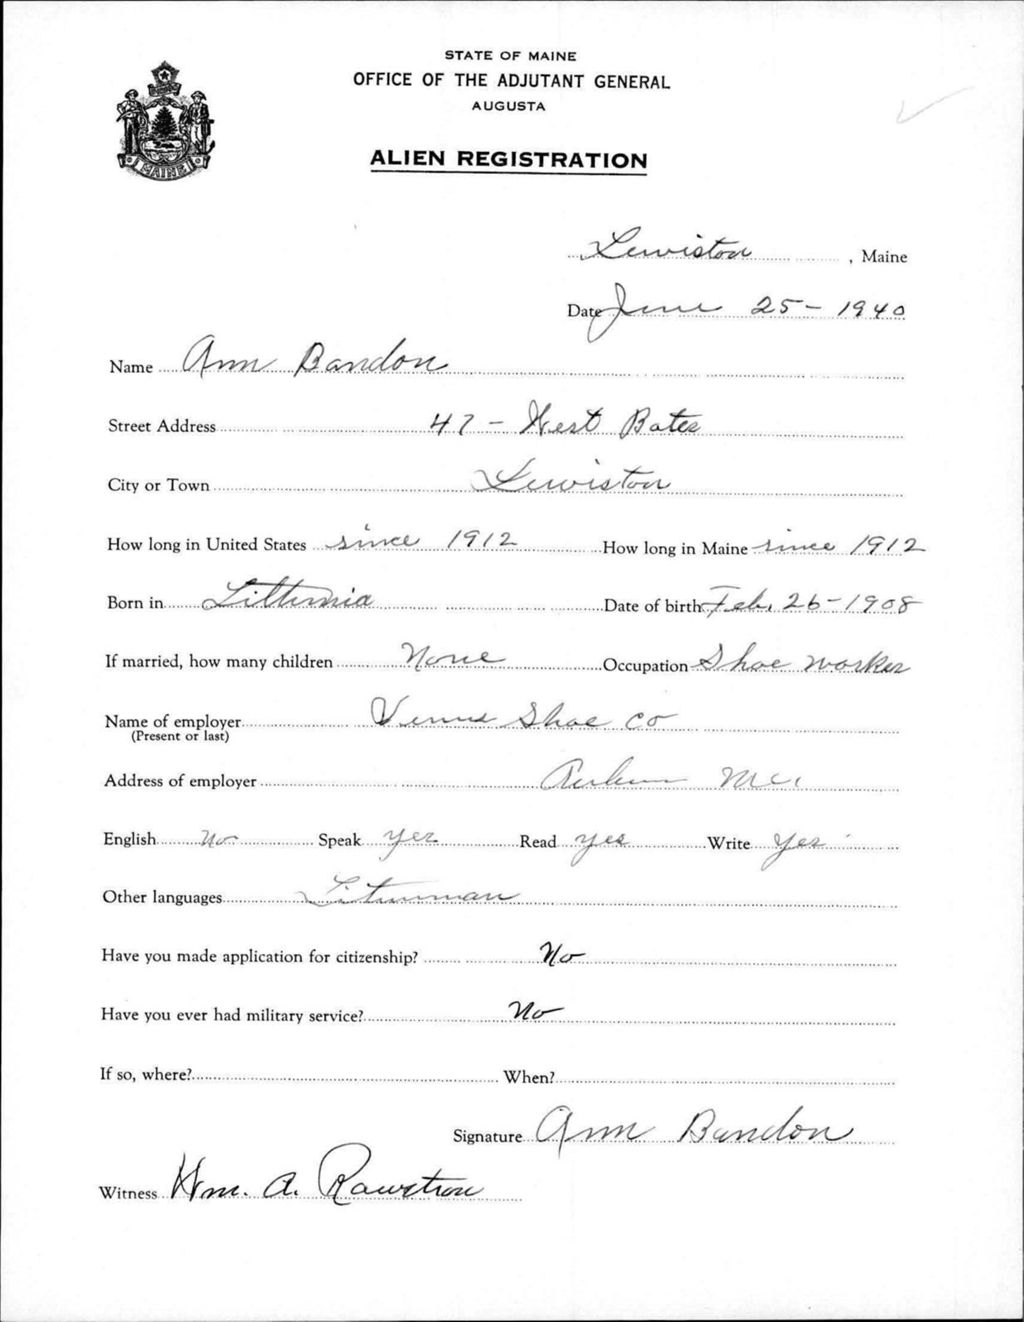 STATE OF MAINE
OFFICE OF THE ADJUTANT GENERAL
AUGUSTA
ALIEN REGISTRATION
MAINE
Lewiston, Maine
Date June 25 - 1940
Name Ann Bandon
Street Address 47 - West Bates
City or Town Lewiston
How long in United States since 1912 How long in Maine since 1912
Born in Date of birth Feb. 26 - 1908
If married, how many children None Occupation Shoe worker
Name of employer Venus Shoe Co
(Present or last)
Address of employer Auburn Me.
English No Speak Yes Read Yes Write Yes
Other languages
Have you made application for citizenship? No
Have you ever had military service? No
If so, where? When?
Signature Ann Bandon
Witness Wm. A. Rawstron